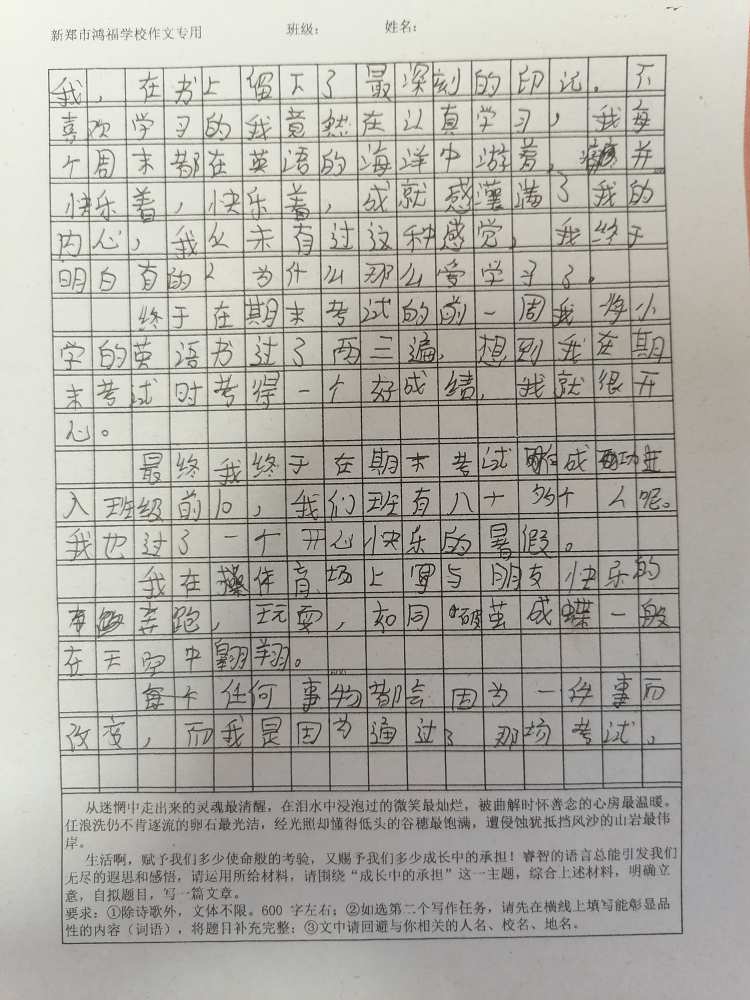 新郑市鸿福学校作文专用 班级： 姓名：
我，在书上留下了最深刻的印记。不
喜欢学习的我竟然在认真学习，我每
个周末都在英语的海洋中游着，并
快乐着，快乐着，成就感灌满了我的
内心，我从未有过这种感觉，我终于
明白有的人为什么那么爱学习了。
终于在期末考试的前一周我将小
学的英语书过了两三遍，想到我在期
末考试时考得一个好成绩，我就很开
心。
最终我终于在期末考试成功进
入班级前10，我们班有八十多个人呢。
我也过了一个开心快乐的暑假。
我在操体育场上与朋友快乐的
奔跑，玩耍，如同破茧成蝶一般
在天空中翱翔。
每个任何事物都会因为一件事而
改变，而我是因为通过了那场考试。
从迷惘中走出来的灵魂最清醒，在泪水中浸泡过的微笑最灿烂，被曲解时怀善念的心房最温暖。
任浪洗仍不肯逐流的卵石最光洁，经光照却懂得低头的谷穗最饱满，遭侵蚀犹抵挡风沙的山岩最伟
岸。
生活啊，赋予我们多少使命般的考验，又赐予我们多少成长中的承担！睿智的语言总能引发我们
无尽的遐思和感悟，请运用所给材料，请围绕“成长中的承担”这一主题，综合上述材料，明确立
意，自拟题目，写一篇文章。
要求：①除诗歌外，文体不限。600 字左右；②如选第二个写作任务，请先在横线上填写能彰显品
性的内容（词语），将题目补充完整；③文中请回避与你相关的人名、校名、地名。